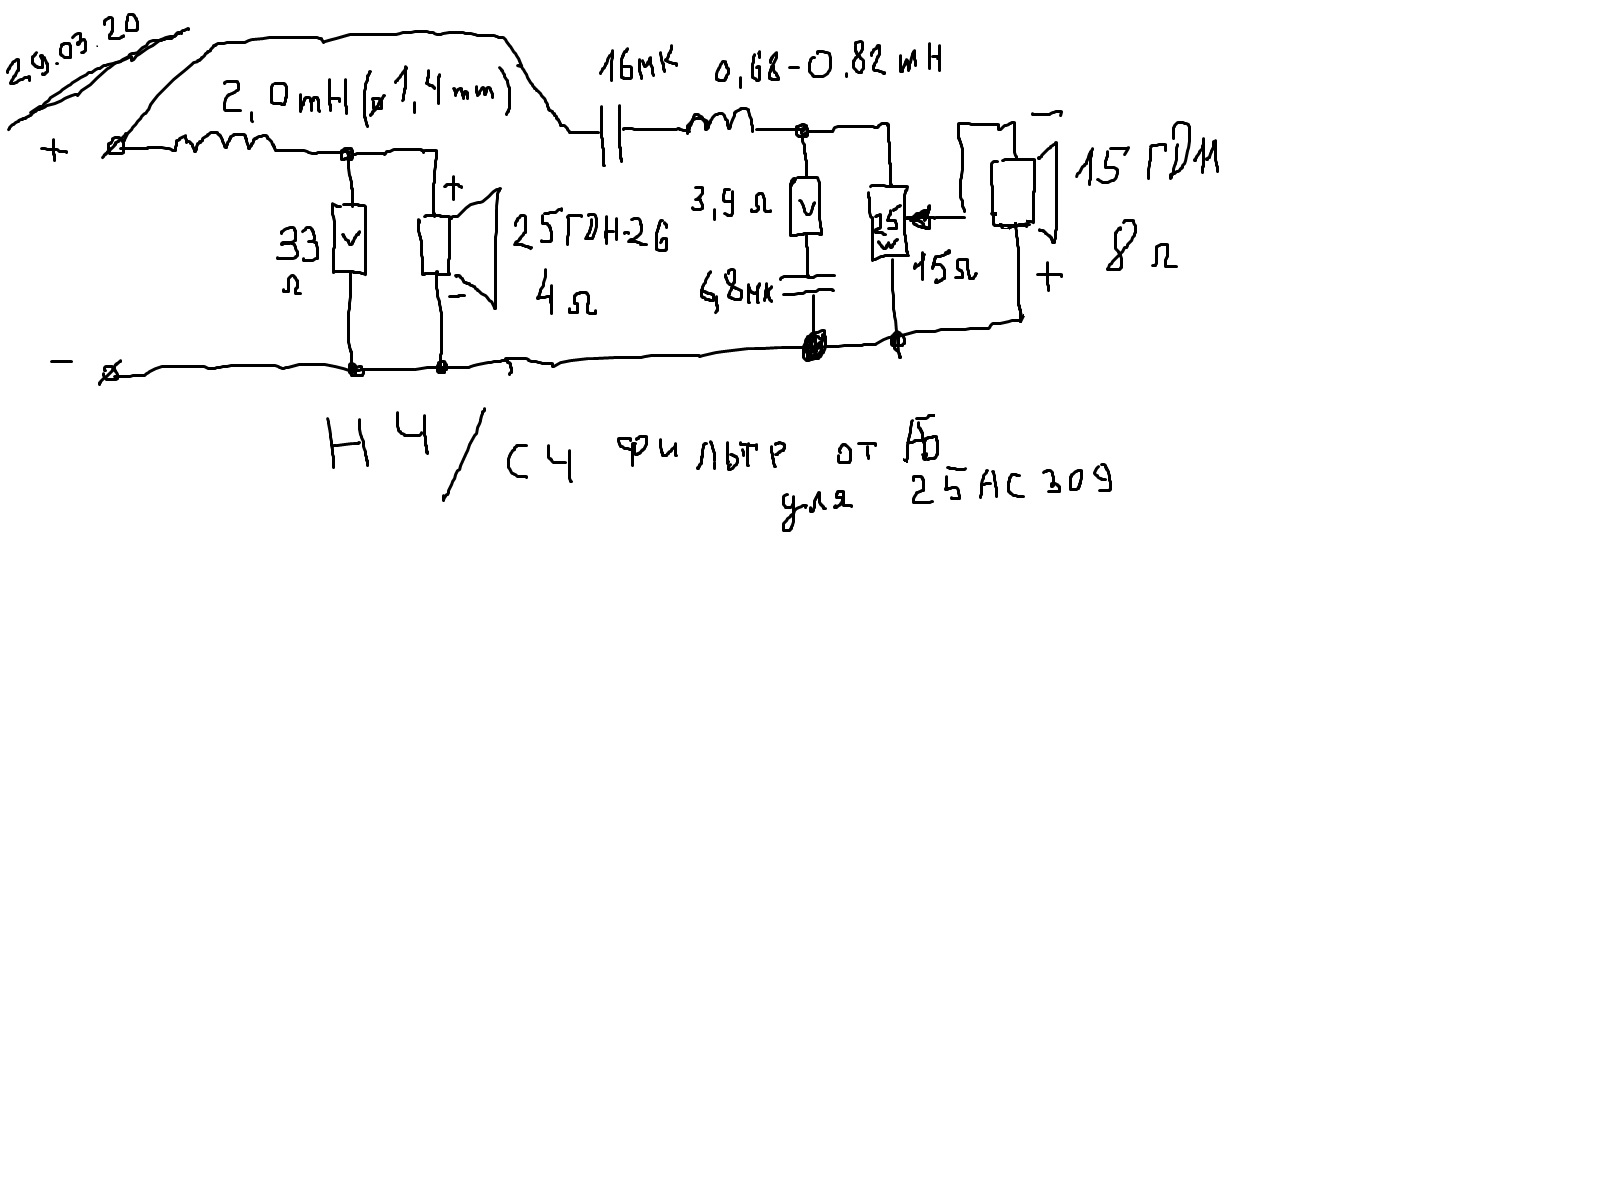 29.03.20
2,0mH(ø1,4mm)
16мк
0,68-0.82mH
+
-
33
Ω
+
-
25ГДН-26
4Ω
3,9Ω
6,8мк
25
W
15Ω
-
+
15ГДН
8Ω
НЧ/СЧ фильтр от АБ
для 25АС309